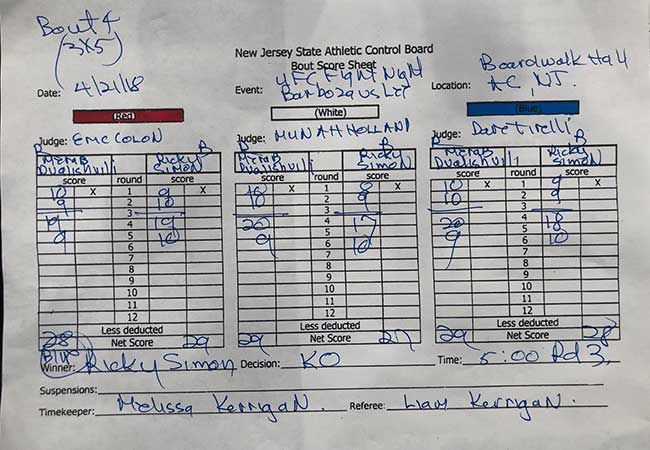 Bout 4
(3x5)
New Jersey State Athletic Control Board
Bout Score Sheet
Date: 4/21/18
Event: UFC Fight Night
Barboza vs Lee
Location: Boardwalk Hall
AC, NJ.
(Red) (White) (Blue)
Judge: Eric Colon
Judge: Munah Holland
Judge: Dave Tirelli
R B R B R B
Merab Dvalishvili Ricky Simon Merab Dvalishvili Ricky Simon Merab Dvalishvili Ricky Simon
score round score score round score score round score
10 X 1 9 X 10 X 1 8 X 10 X 1 9 X
9 2 10 10 2 9 10 2 9
3 3 3
19 4 19 20 4 17 20 4 18
9 5 10 9 5 10 9 5 10
6 6 6
7 7 7
8 8 8
9 9 9
10 10 10
11 11 11
12 12 12
Less deducted Less deducted Less deducted
28 Net Score 29 29 Net Score 27 29 Net Score 28
Blue
Winner: Ricky Simon Decision: KO Time: 5:00 Rd 3
Suspensions:
Timekeeper: Melissa Kerrigan. Referee: Liam Kerrigan.